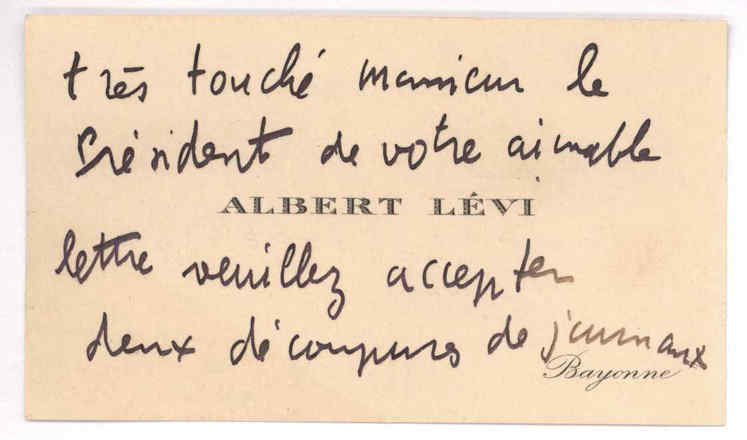 très touché monsieur le
Président de votre aimable
ALBERT LÉVI
lettre veuillez accepter
deux découpures de journaux
Bayonne